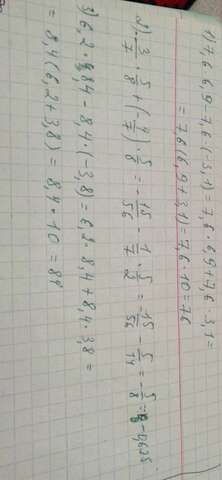 1) 7,6 · 6,9 - 7,6 · (-3,1) = 7,6 · 6,9 + 7,6 · 3,1 =
= 7,6 (6,9 + 3,1) = 7,6 · 10 = 76
2) -3/7 · 5/8 + (-4/7) · 5/8 = -15/56 - 1/7 · 5/2 = -15/56 - 5/14 = -5/8 = -0,625
3) 6,2 · 8,4 - 8,4 · (-3,8) = 6,2 · 8,4 + 8,4 · 3,8 =
= 8,4 (6,2 + 3,8) = 8,4 · 10 = 84